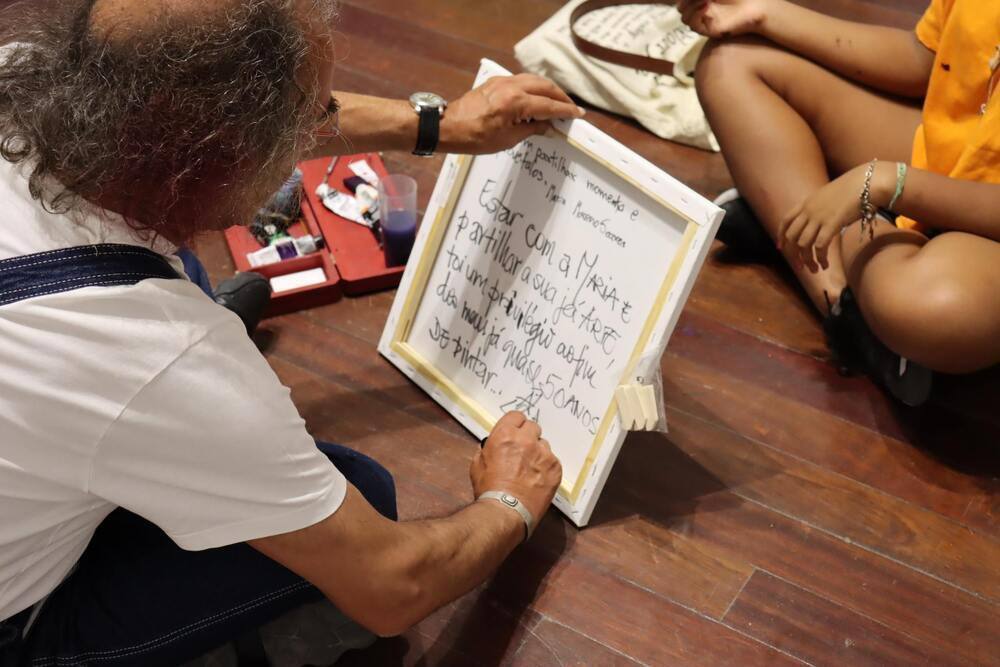 partilhas momento e
afetos. Maria
Estar com a MARIA E
partilhar a sua já ARTE
foi um privilégio ao fim
dos meus já quase 50 ANOS
DE pintar...